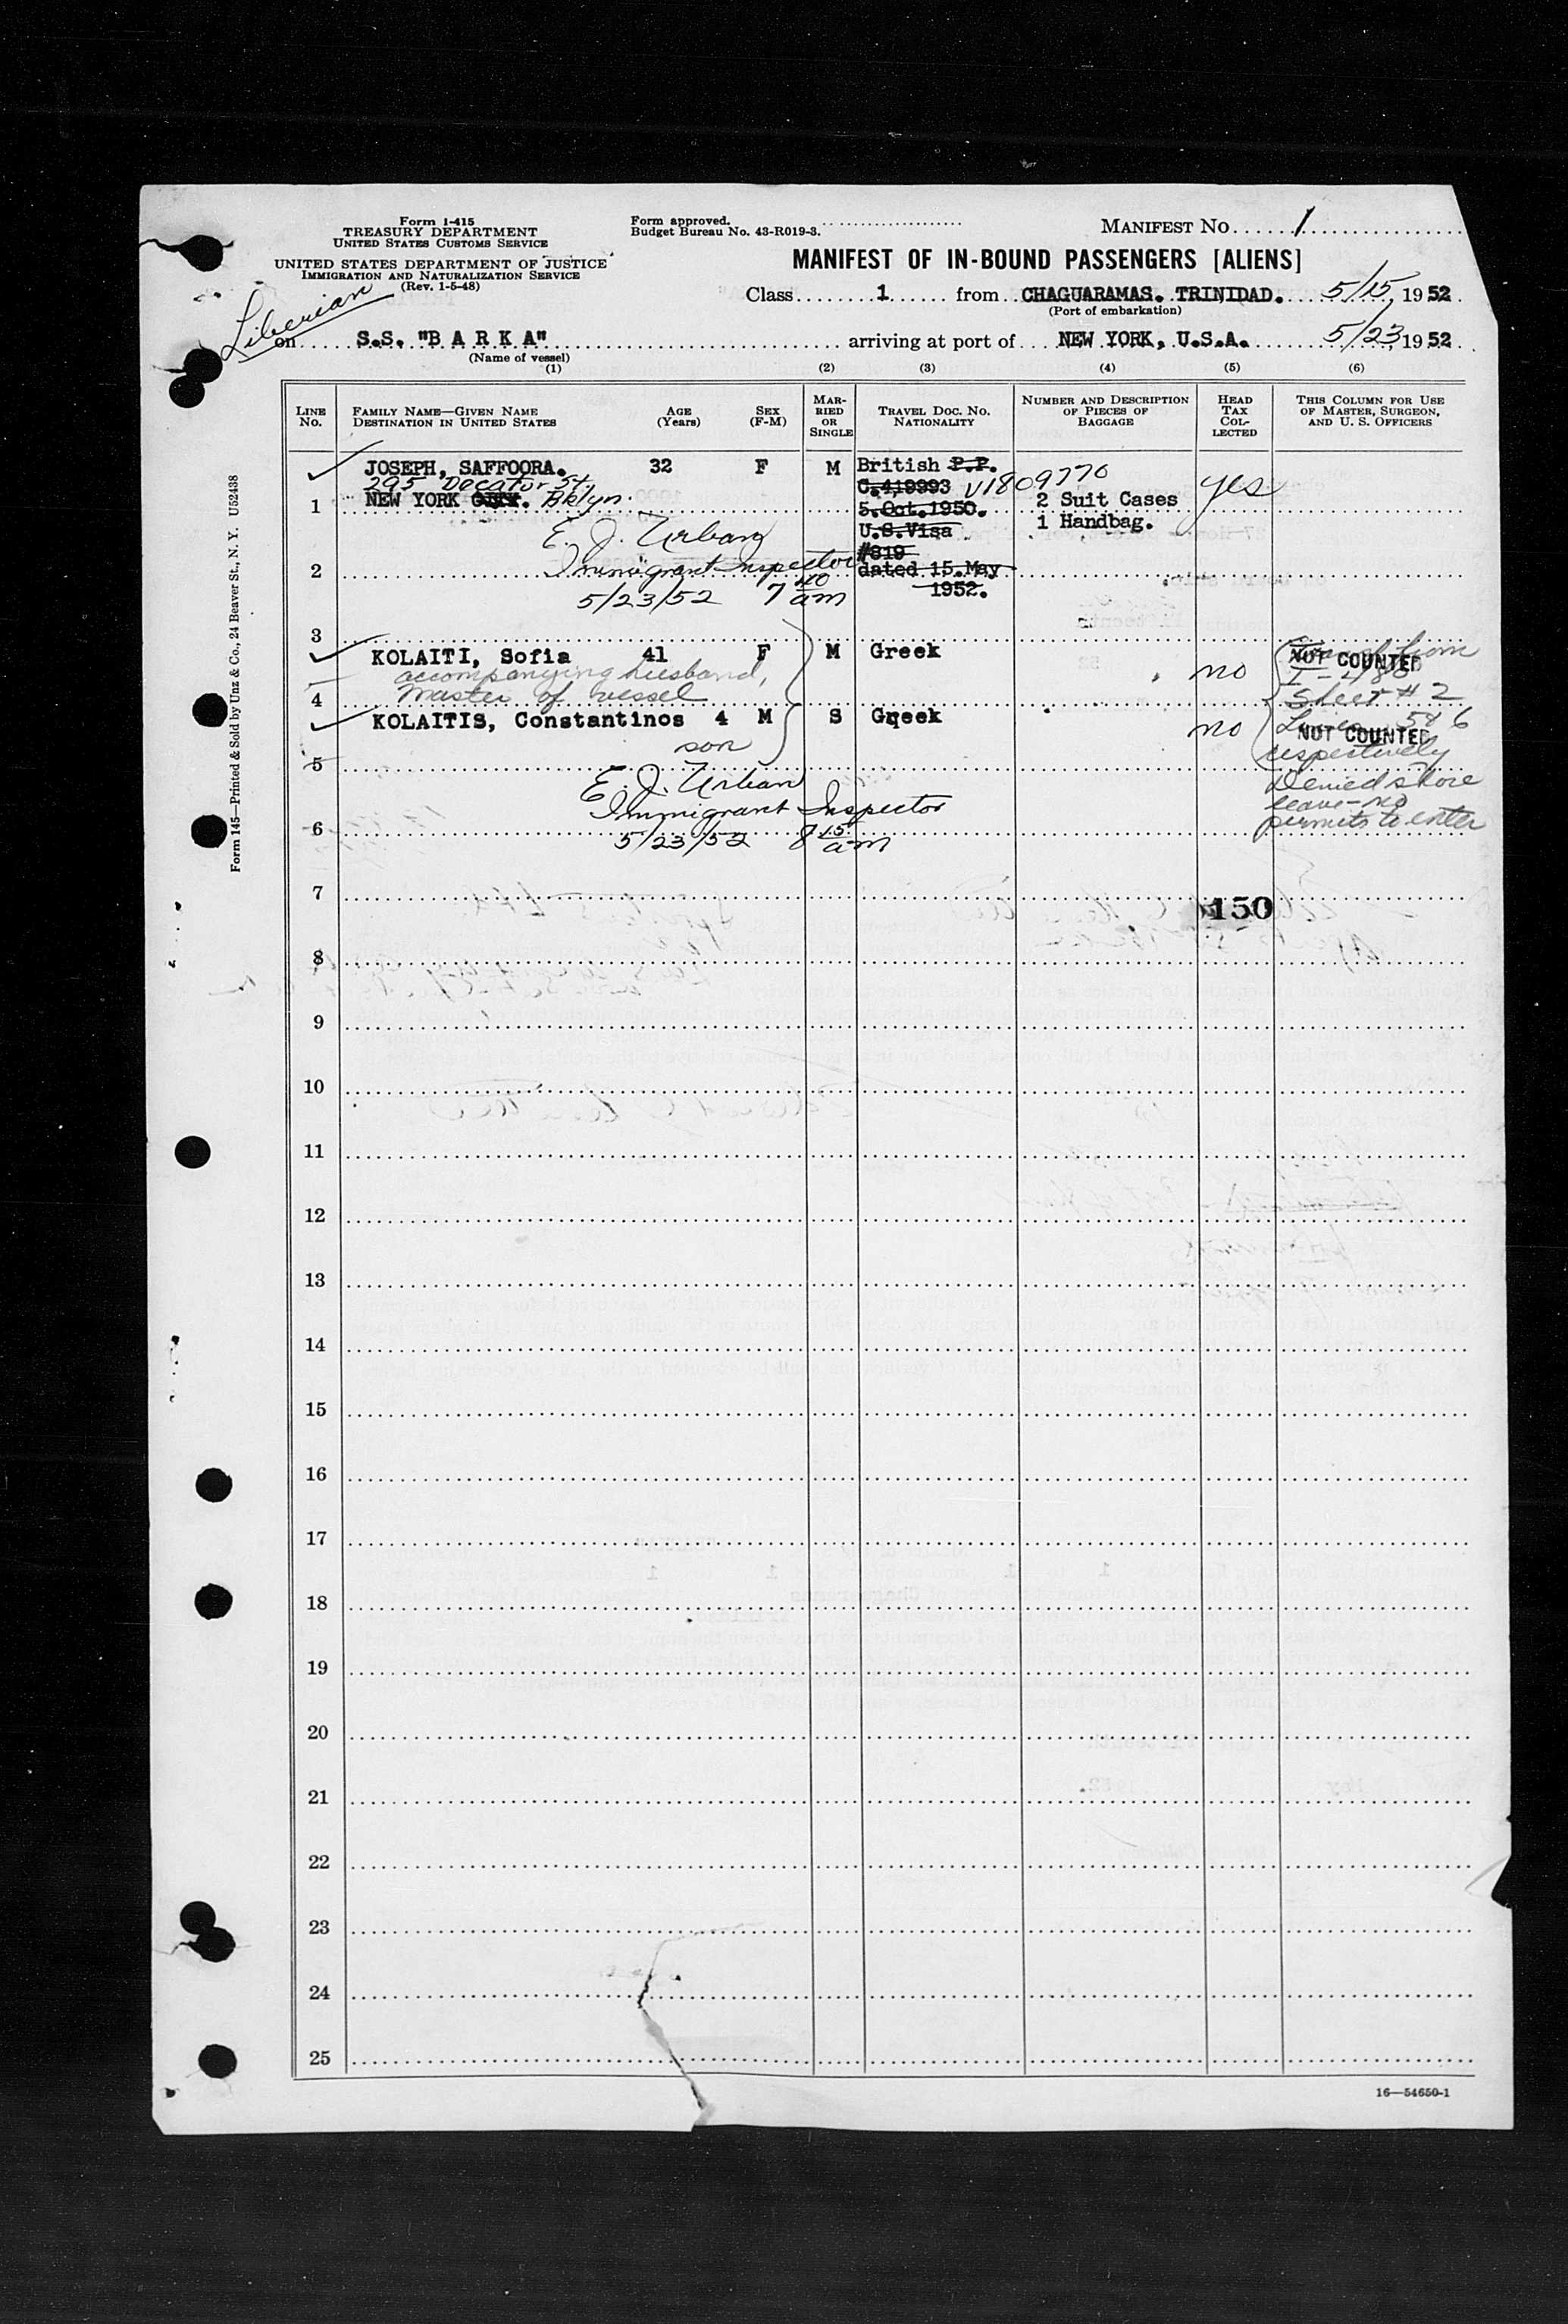 Form I-415
TREASURY DEPARTMENT
UNITED STATES CUSTOMS SERVICE
UNITED STATES DEPARTMENT OF JUSTICE
IMMIGRATION AND NATURALIZATION SERVICE
(Rev. 1-5-48)
Form approved.
Budget Bureau No. 43-R019-3.
MANIFEST NO. 1
MANIFEST OF IN-BOUND PASSENGERS [ALIENS]
Class 1 from CHAGUARAMAS. TRINIDAD. 5/15, 1952
(Port of embarkation)
Liberian
on S.S. "B A R K A" arriving at port of NEW YORK, U.S.A. 5/23, 1952
(Name of vessel)
(1) (2) (3) (4) (5) (6)
LINE No. FAMILY NAME—GIVEN NAME DESTINATION IN UNITED STATES AGE (Years) SEX (F-M) MARRIED OR SINGLE TRAVEL DOC. NO. NATIONALITY NUMBER AND DESCRIPTION OF PIECES OF BAGGAGE HEAD TAX COLLECTED THIS COLUMN FOR USE OF MASTER, SURGEON, AND U. S. OFFICERS
JOSEPH, SAFFOORA. 32 F M British P.P.
295 Decatur St. C.419993 V1809770 yes
1 NEW YORK CITY. Bklyn. 5.Oct.1950. 2 Suit Cases
U.S.Visa 1 Handbag.
E. J. Urban #819
2 Immigrant Inspector dated 15.May
5/23/52 7 40 am 1952.
3
KOLAITI, Sofia 41 F M Greek no NOT COUNTED
accompanying husband, I-480
4 Master of vessel Sheet # 2
KOLAITIS, Constantinos 4 M S Greek no Lines 5 & 6
son NOT COUNTED
5 respectively
E. J. Urban Denied shore
Immigrant Inspector leave-no
6 permits to enter
5/23/52 8 15 am
7
150
8
9
10
11
12
13
14
15
16
17
18
19
20
21
22
23
24
25
16—54650-1
Form 145—Printed & Sold by Unz & Co., 24 Beaver St., N. Y. U52438